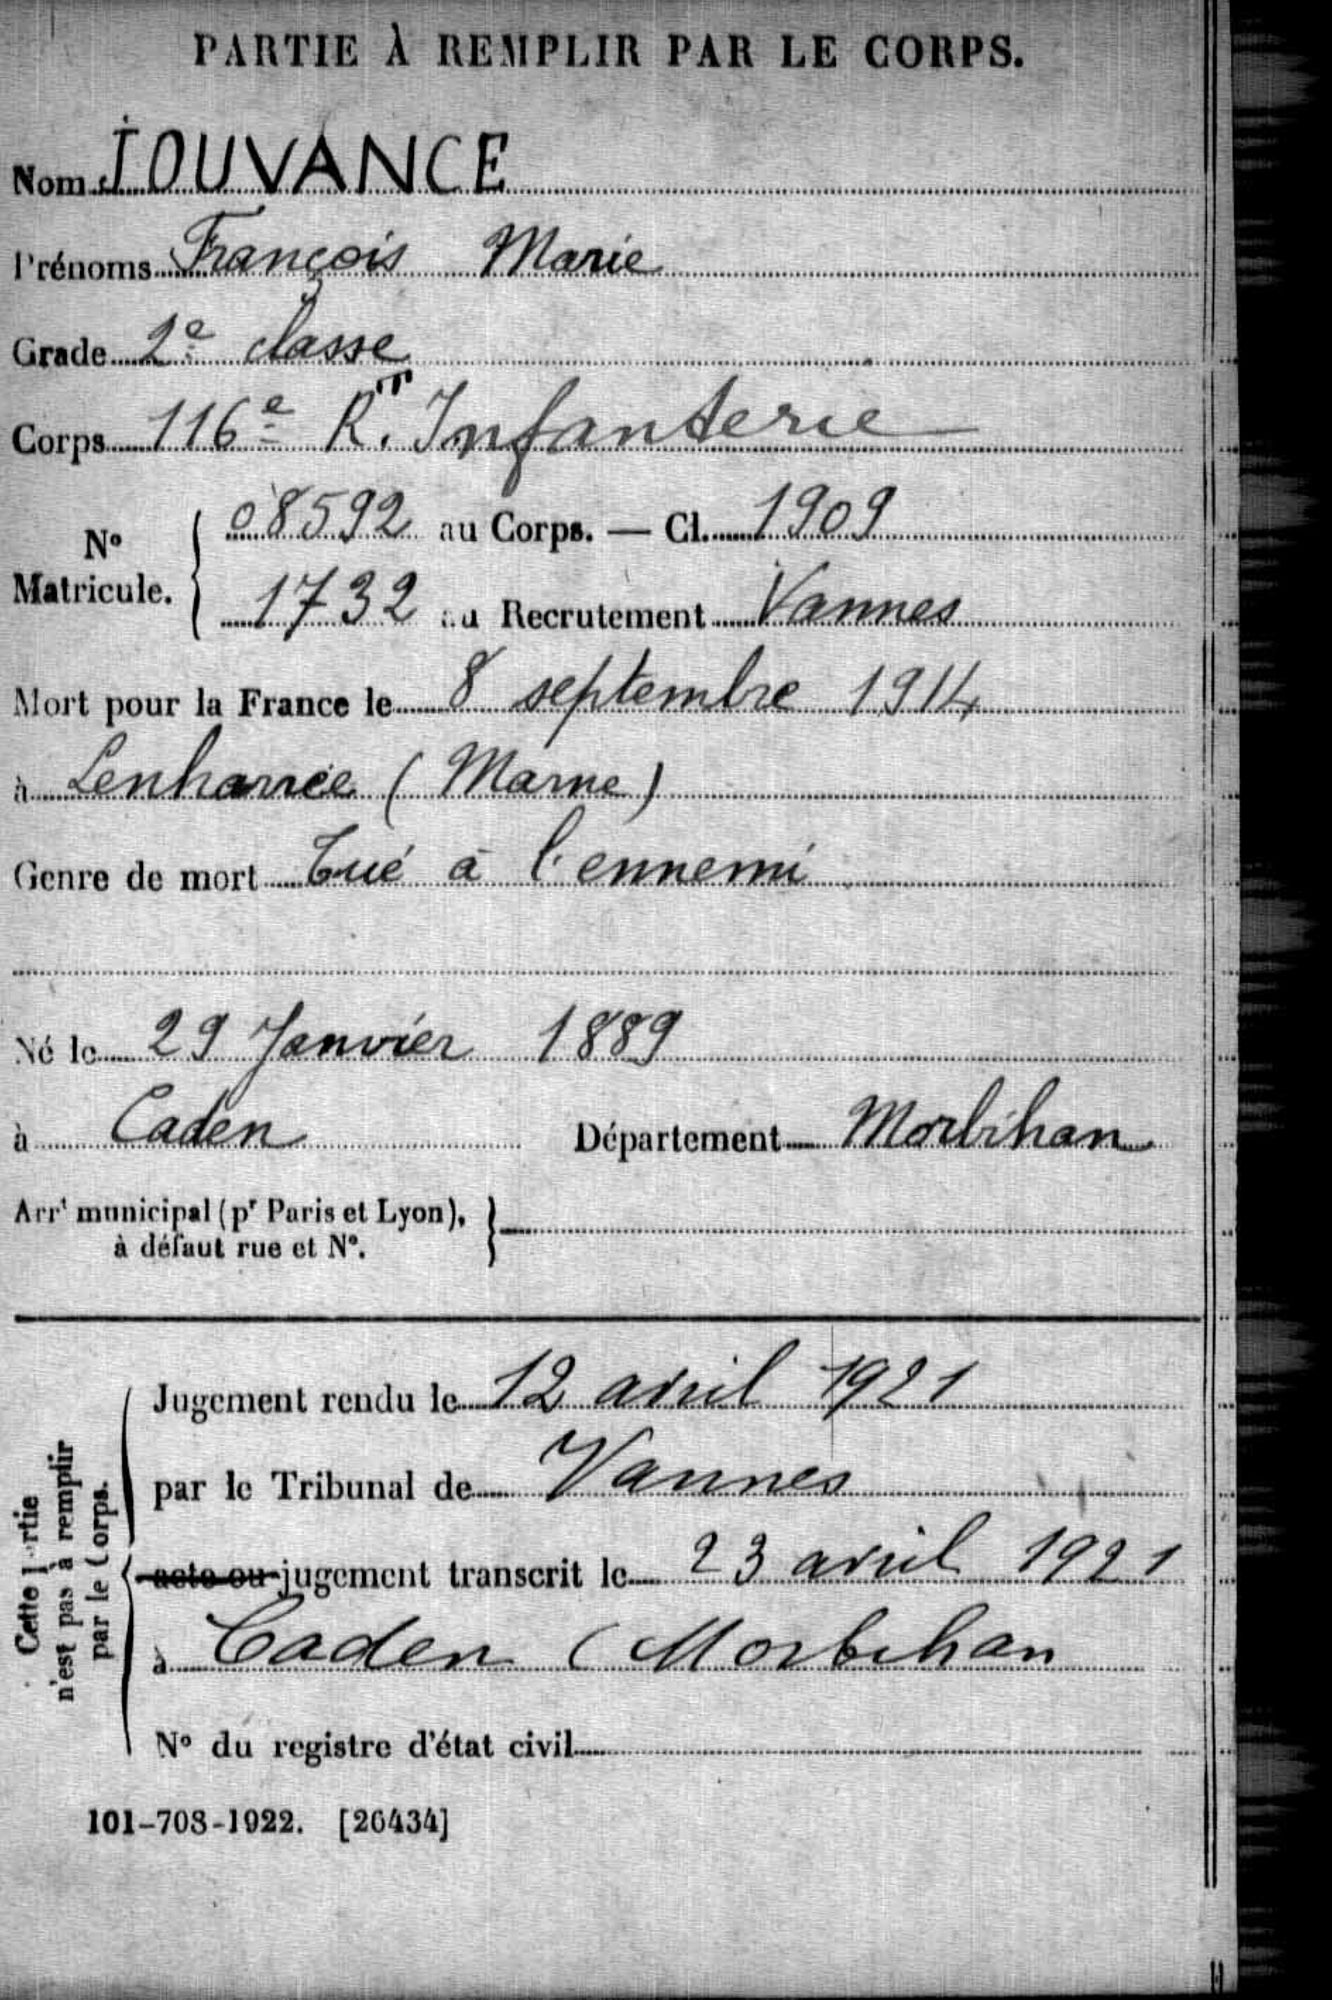 PARTIE À REMPLIR PAR LE CORPS.
Nom JOUVANCE
Prénoms François Marie
Grade 2e classe
Corps 116e R.T Infanterie
No Matricule. { 08592 au Corps. — Cl. 1909
1732 au Recrutement Vannes
Mort pour la France le 8 septembre 1914
à Lenharrée (Marne)
Genre de mort Tué à l'ennemi
Né le 29 Janvier 1889
à Caden Département Morbihan
Arrt municipal (pr Paris et Lyon),
à défaut rue et No.
Cette partie
n'est pas à remplir
par le Corps.
Jugement rendu le 12 avril 1921
par le Tribunal de Vannes
acte ou jugement transcrit le 23 avril 1921
à Caden (Morbihan
No du registre d'état civil
101-708-1922. [26434]